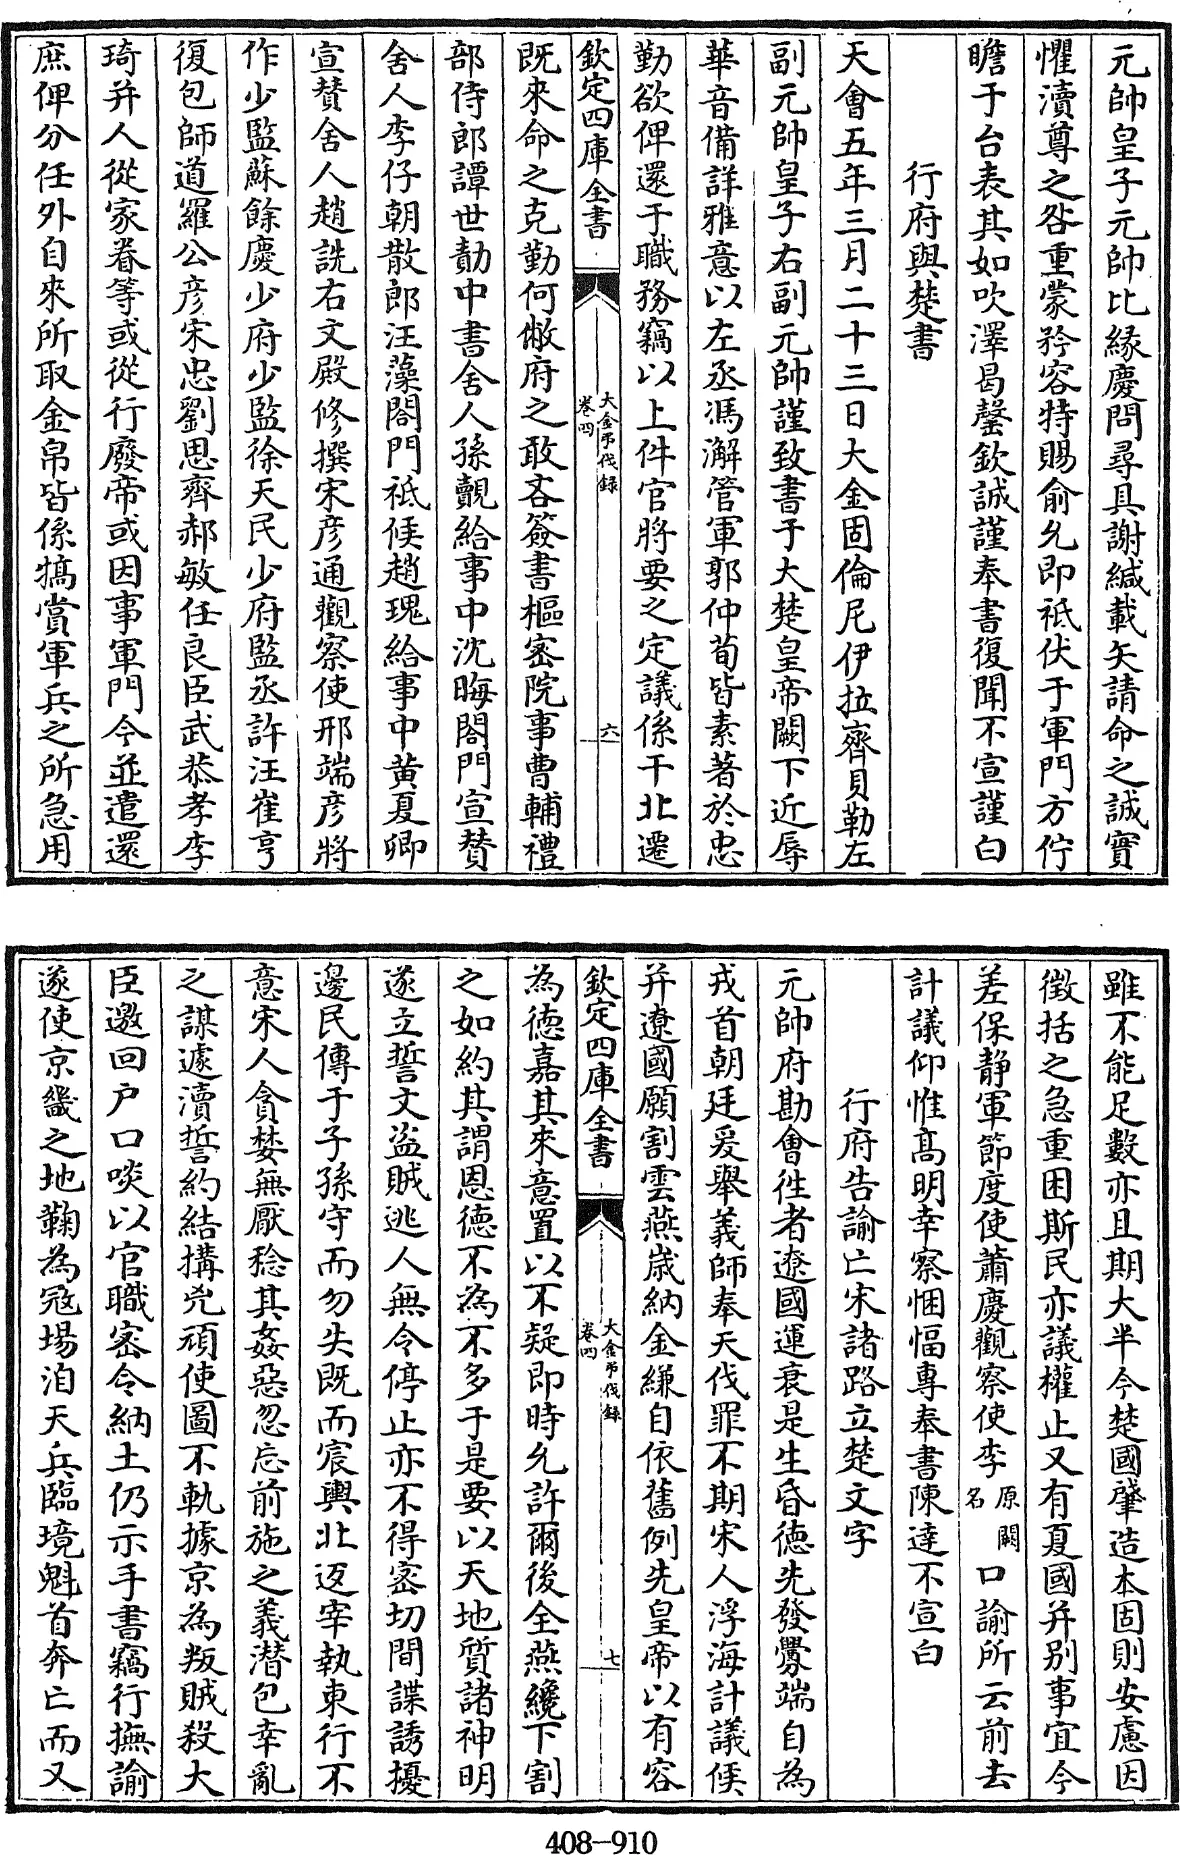 元帥皇子元帥比緣慶問尋具謝緘載矢請命之誠實
懼瀆尊之咎重蒙矜容特賜俞允即祗伏于軍門方佇
瞻于台表其如吹澤曷罄欽誠謹奉書復聞不宣謹白
行府與楚書
天會五年三月二十三日大金固倫尼伊拉齊貝勒左
副元帥皇子右副元帥謹致書于大楚皇帝闕下近辱
華音備詳雅意以左丞馮澥管軍郭仲荀皆素著於忠
勤欲俾還于職務竊以上件官將要之定議係干北遷
欽定四庫全書
大金弔伐錄
卷四
六
既來命之克勤何敝府之敢吝簽書樞密院事曹輔禮
部侍郎譚世勣中書舍人孫覿給事中沈晦閤門宣贊
舍人李仔朝散郎汪藻閤門祗候趙瑰給事中黃夏卿
宣贊舍人趙詵右文殿修撰宋彥通觀察使邢端彥將
作少監蘇餘慶少府少監徐天民少府監丞許汪崔亨
復包師道羅公彥宋忠劉思齊郝敏任良臣武恭孝李
琦并人從家眷等或從行廢帝或因事軍門今並遣還
庶俾分任外自來所取金帛皆係犒賞軍兵之所急用
雖不能足數亦且期大半今楚國肇造本固則安慮因
徵括之急重困斯民亦議權止又有夏國并别事宜今
差保静軍節度使蕭慶觀察使李原闕名口諭所云前去
計議仰惟髙明幸察悃愊專奉書陳達不宣白
行府告諭亡宋諸路立楚文字
元帥府勘會徃者遼國運衰是生昏德先發釁端自為
戎首朝廷爰舉義師奉天伐罪不期宋人浮海計議俟
并遼國願割雲燕歳納金縑自依舊例先皇帝以有容
欽定四庫全書
大金弔伐錄
卷四
七
為德嘉其來意置以不疑即時允許爾後全燕纔下割
之如約其謂恩德不為不多于是要以天地質諸神明
遂立誓文盜賊逃人無令停止亦不得密切間諜誘擾
邊民傳于子孫守而勿失既而宸輿北返宰執東行不
意宋人貪婪無厭稔其姦惡忽忘前施之義潜包幸亂
之謀遽瀆誓約結搆兇頑使圖不軌據京為叛賊殺大
臣邀回户口啖以官職密令納土仍示手書竊行撫諭
遂使京畿之地鞠為冦場洎天兵臨境魁首奔亡而又
408-910